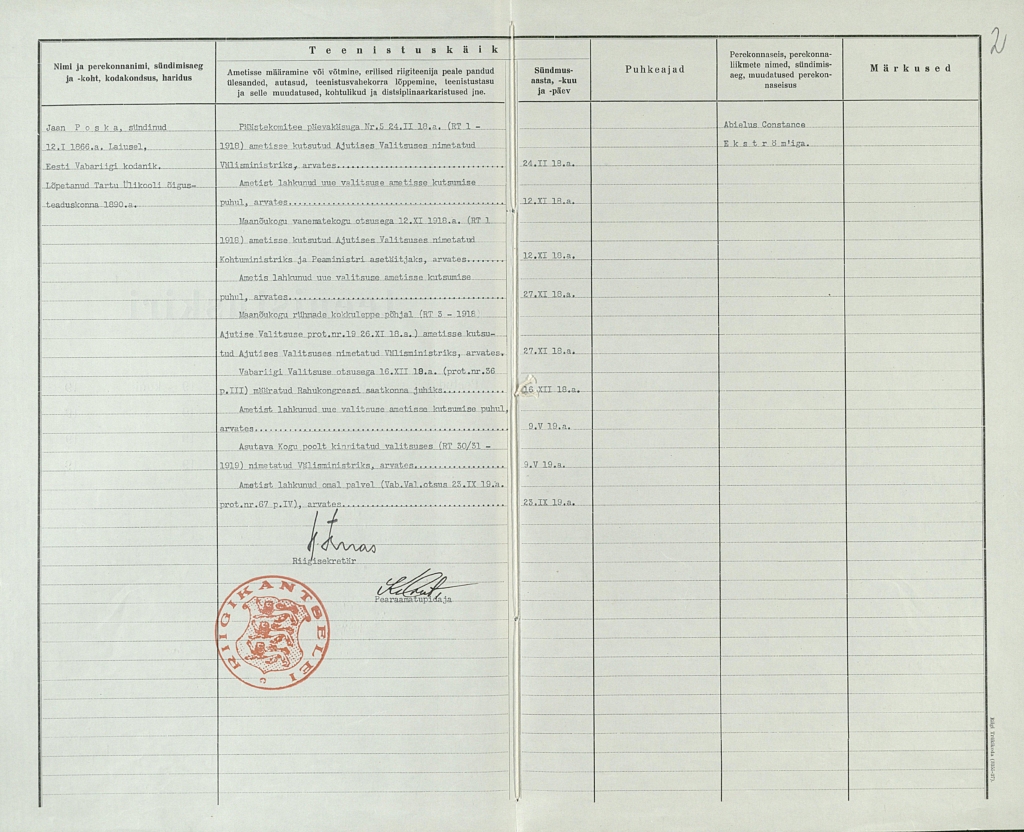 2
Nimi ja perekonnanimi, sündimisaeg
ja -koht, kodakondsus, haridus
Teenistuskäik
Ametisse määramine või võtmine, erilised riigiteenija peale pandud
ülesanded, autasud, teenistusvahekorra lõppemine, teenistustasu
ja selle muudatused, kohtulikud ja distsiplinaarkaristused jne.
Sündmus-
aasta, -kuu
ja -päev
Puhkeajad
Perekonnaseis, perekonna-
liikmete nimed, sündimis-
aeg, muudatused perekon-
naseisus
Märkused
Jaan P o s k a, sündinud
12.I 1866.a. Laiusel,
Eesti Vabariigi kodanik.
Lõpetanud Tartu Ülikooli õigus-
teaduskonna 1890.a.
Päästekomitee päevakäsuga Nr.5 24.II 18.a. (RT 1 -
1918) ametisse kutsutud Ajutises Valitsuses nimetatud
Välisministriks, arvates........ 24.II 18.a.
Ametist lahkunud uue valitsuse ametisse kutsumise
puhul, arvates........ 12.XI 18.a.
Maanõukogu vanematekogu otsusega 12.XI 1918.a. (RT 1
1918) ametisse kutsutud Ajutises Valitsuses nimetatud
Kohtuministriks ja Peaministri asetäitjaks, arvates........ 12.XI 18.a.
Ametis lahkunud uue valitsuse ametisse kutsumise
puhul, arvates........ 27.XI 18.a.
Maanõukogu rühmade kokkuleppe põhjal (RT 3 - 1918
Ajutise Valitsuse prot.nr.19 26.XI 18.a.) ametisse kutsu-
tud Ajutises Valitsuses nimetatud Välisministriks, arvates. 27.XI 18.a.
Vabariigi Valitsuse otsusega 16.XII 18.a. (prot.nr.36
p.III) määratud Rahukongressi saatkonna juhiks........ 16 XII 18.a.
Ametist lahkunud uue valitsuse ametisse kutsumise puhul,
arvates........ 9.V 19.a.
Asutava Kogu poolt kinnitatud valitsuses (RT 30/31 -
1919) nimetatud Välisministriks, arvates........ 9.V 19.a.
Ametist lahkunud omal palvel (Vab.Val.otsus 23.IX 19.a.
prot.nr.67 p.IV), arvates........ 23.IX 19.a.
Abielus Constance
E k s t r ö m'iga.
Riigisekretär
Pearaamatupidaja
RIIGIKANTSELEI